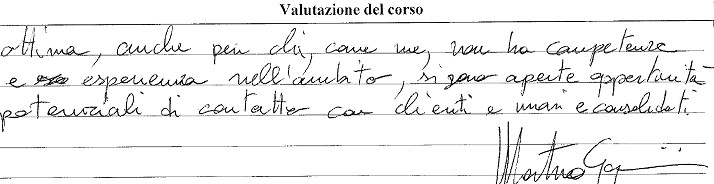 Valutazione del corso
ottima, anche per chi, come me, non ha competenze
e esperienza nell'ambito, si sono aperte opportunità
potenziali di contatto con clienti e consolidati